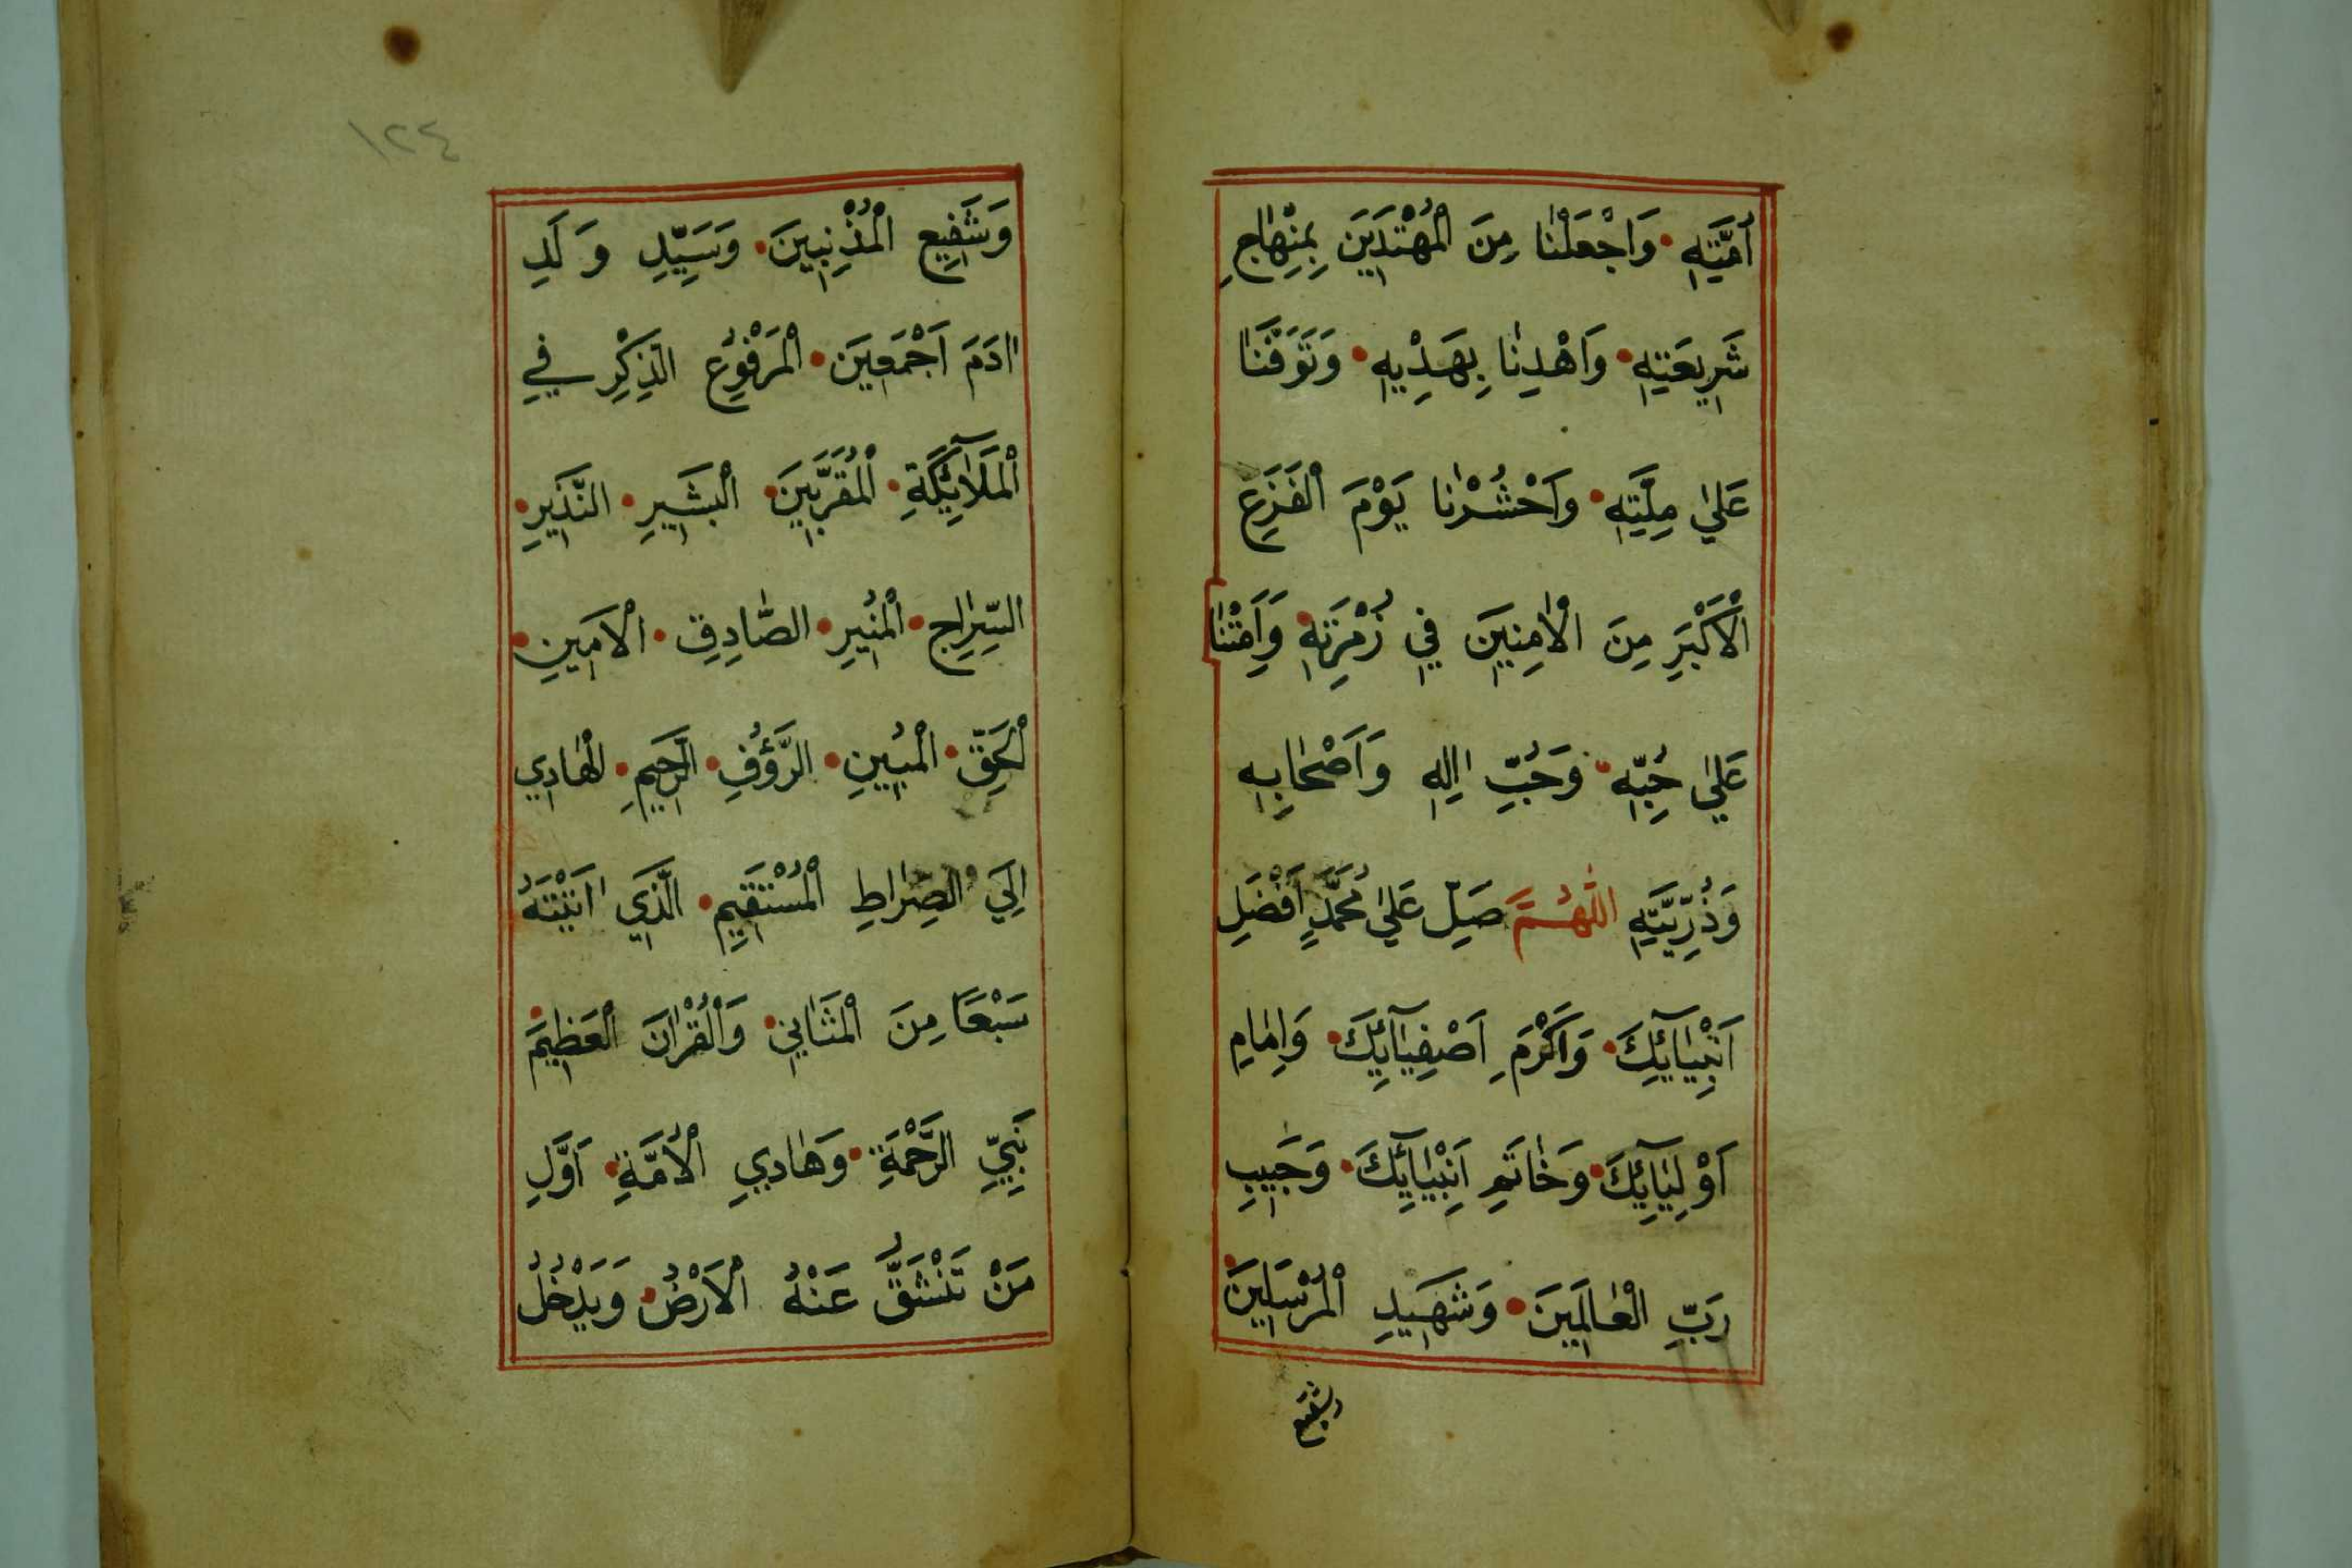 اُمَّتِهِ وَاجْعَلْنَا مِنَ الْمُهْتَدِينَ بِمِنْهَاجِ
شَرِيعَتِهِ وَاهْدِنَا بِهَدْيِهِ وَتَوَفَّنَا
عَلَي مِلَّتِهِ وَاحْشُرْنَا يَوْمَ الْفَزَعِ
الْاَكْبَرِ مِنَ الْاٰمِنِينَ فِي زُمْرَتِهِ وَاَمِتْنَا
عَلَي حُبِّهِ وَحُبِّ اٰلِهِ وَاَصْحَابِهِ
وَذُرِّيَّتِهِ اللّٰهُمَّ صَلِّ عَلَي مُحَمَّدٍ اَفْضَلِ
اَنْبِيَآئِكَ وَاَكْرَمِ اَصْفِيَآئِكَ وَاِمَامِ
اَوْلِيَآئِكَ وَخَاتَمِ اَنْبِيَآئِكَ وَحَبِيبِ
رَبِّ الْعَالَمِينَ وَشَهِيدِ الْمُرْسَلِينَ
وشفيع
١٢٤
وَشَفِيعِ الْمُذْنِبِينَ وَسَيِّدِ وَلَدِ
اٰدَمَ اَجْمَعِينَ الْمَرْفُوعِ الذِّكْرِ فِي
الْمَلَآئِكَةِ الْمُقَرَّبِينَ الْبَشِيرِ النَّذِيرِ
السِّرَاجِ الْمُنِيرِ الصَّادِقِ الْاَمِينِ
الْحَقِّ الْمُبِينِ الرَّؤُفِ الرَّحِيمِ الْهَادِي
اِلَي الصِّرَاطِ الْمُسْتَقِيمِ الَّذِي اٰتَيْتَهُ
سَبْعًا مِنَ الْمَثَانِي وَالْقُرْاٰنَ الْعَظِيمَ
نَبِيِّ الرَّحْمَةِ وَهَادِي الْاُمَّةِ اَوَّلِ
مَنْ تَنْشَقُّ عَنْهُ الْاَرْضُ وَيَدْخُلُ